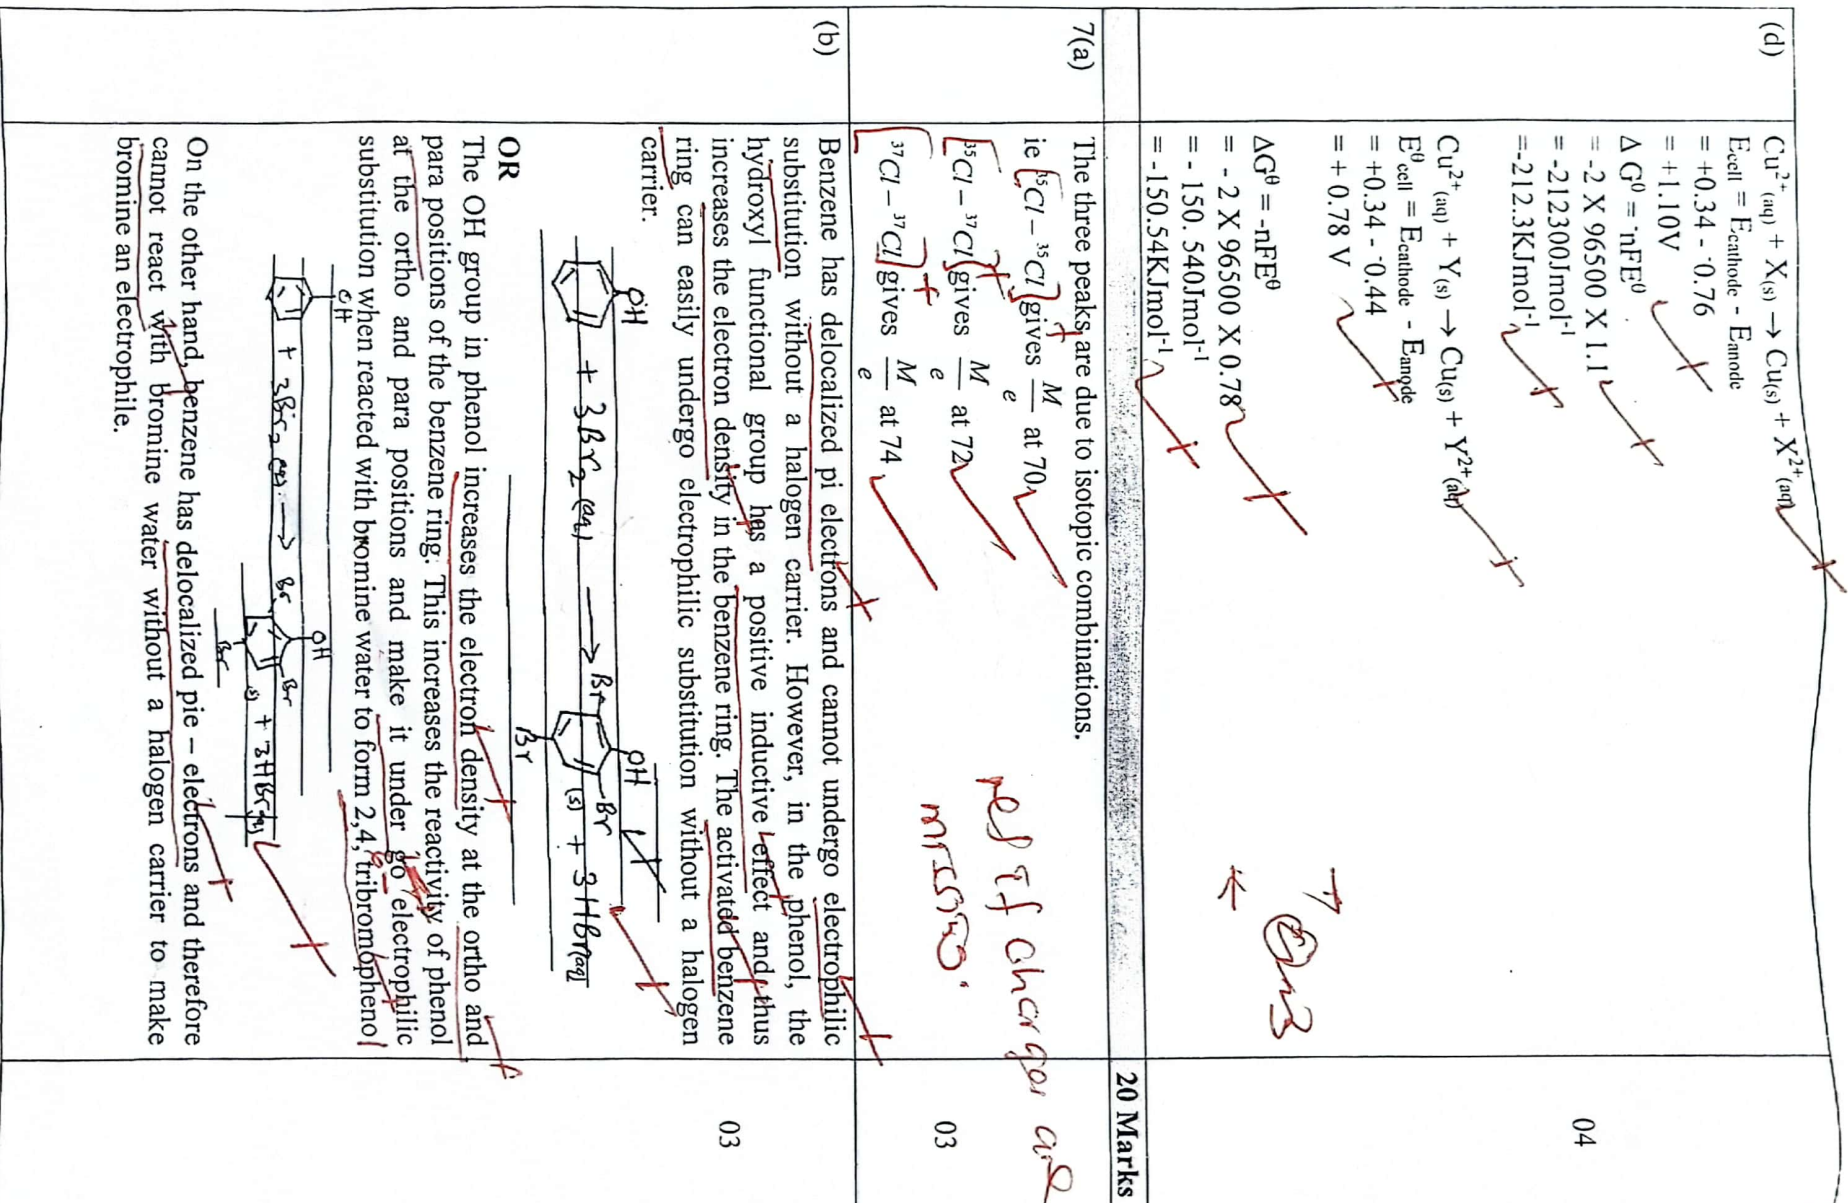 (d)
Cu²⁺(aq) + X(s) → Cu(s) + X²⁺(aq)
Ecell = Ecathode - Eanode
= +0.34 - ⁻0.76
= +1.10V
ΔG⁰ = ⁻nFE⁰
= -2 X 96500 X 1.1
= -212300Jmol⁻¹
=-212.3KJmol⁻¹
04
Cu²⁺(aq) + Y(s) → Cu(s) + Y²⁺(aq)
E⁰cell = Ecathode - Eanode
= +0.34 - ⁻0.44
= + 0.78 V
ΔG⁰ = -nFE⁰
= - 2 X 96500 X 0.78
= - 150. 540Jmol⁻¹
= -150.54KJmol⁻¹
20 Marks
7(a)
The three peaks, are due to isotopic combinations.
ie [³⁵Cl – ³⁵Cl]⁺ gives M/e at 70
[³⁵Cl – ³⁷Cl]⁺ gives M/e at 72
[³⁷Cl – ³⁷Cl]⁺ gives M/e at 74
rej if charges are
missing.
03
(b)
Benzene has delocalized pi electrons and cannot undergo electrophilic
substitution without a halogen carrier. However, in the phenol, the
hydroxyl functional group has a positive inductive effect and thus
increases the electron density in the benzene ring. The activated benzene
ring can easily undergo electrophilic substitution without a halogen
carrier.
03
OH + 3Br₂(aq) → Br OH Br Br (s) + 3HBr(aq)
OR
The OH group in phenol increases the electron density at the ortho and
para positions of the benzene ring. This increases the reactivity of phenol
at the ortho and para positions and make it under go electrophilic
substitution when reacted with bromine water to form 2,4, 6- tribromophenol
OH + 3Br₂(aq) → Br OH Br Br (s) + 3HBr(aq)
On the other hand, benzene has delocalized pie – electrons and therefore
cannot react with bromine water without a halogen carrier to make
bromine an electrophile.